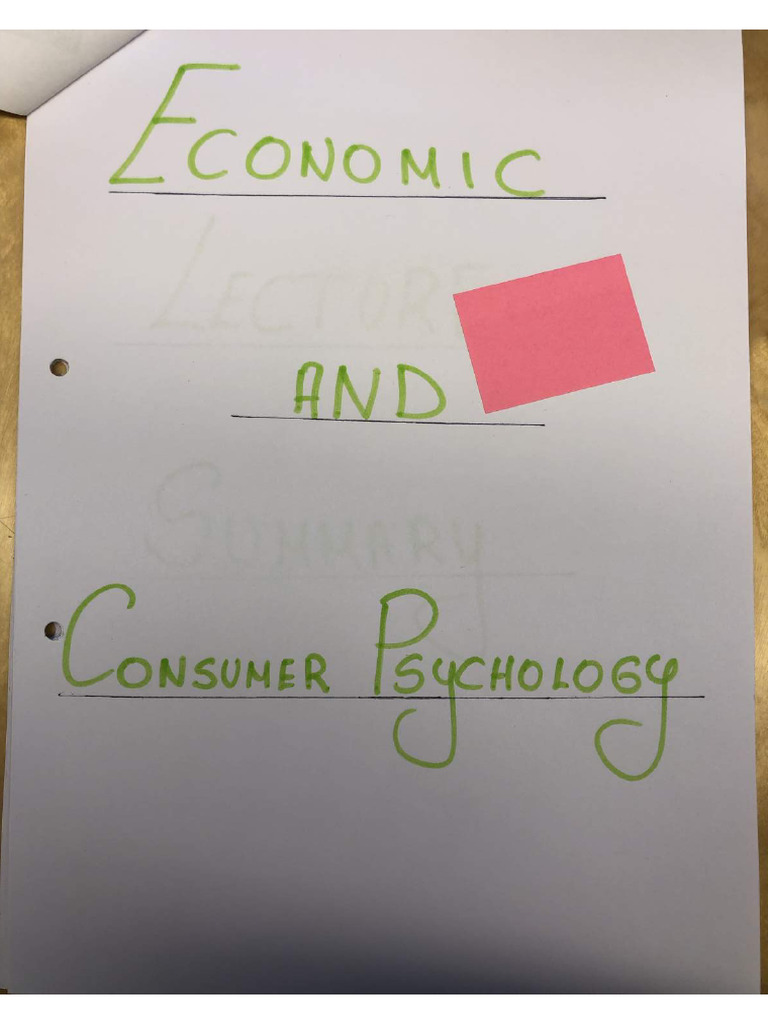 ECONOMIC
LECTURE
AND
SUMMARY
CONSUMER PSYCHOLOGY